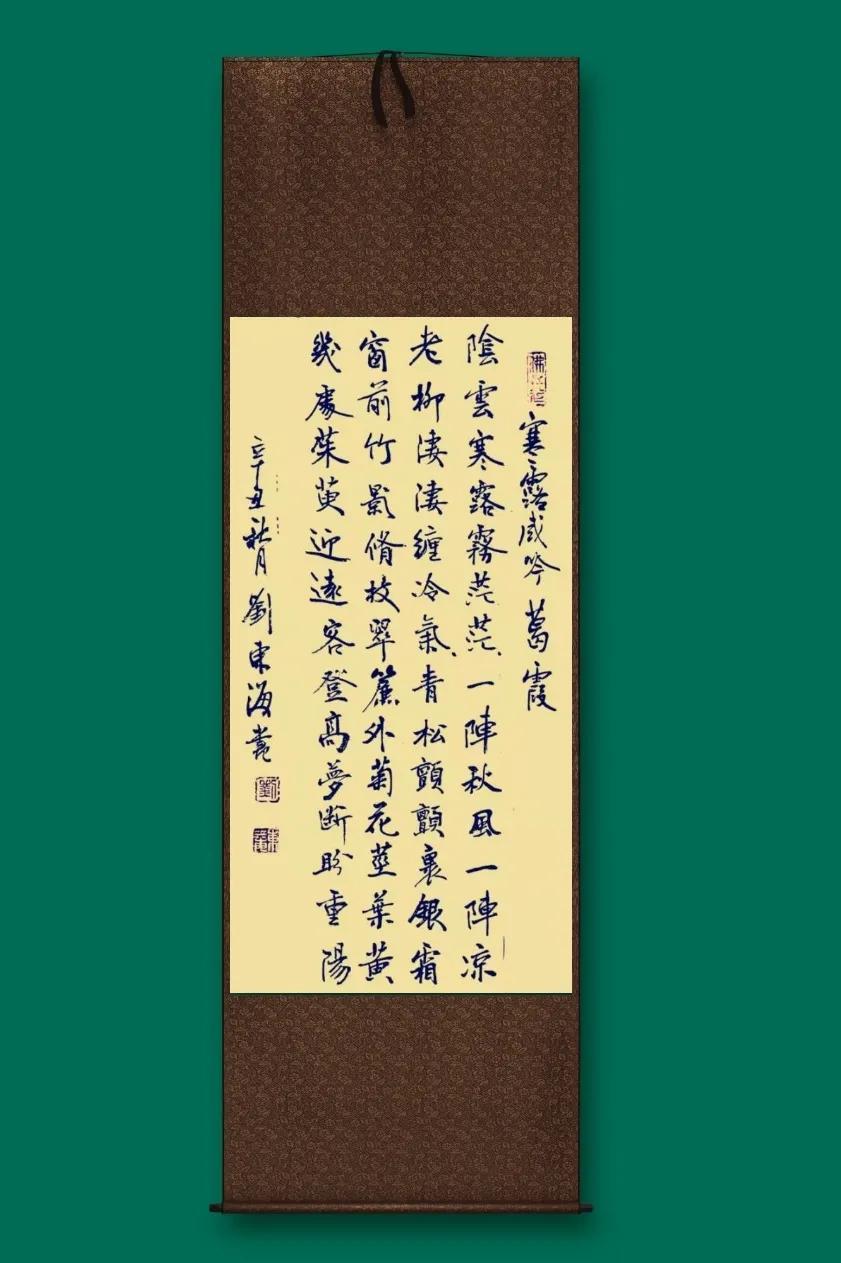 寒露感吟 葛霞
陰雲寒露霧茫茫一陣秋風一陣凉
老柳淒淒纏冷氣青松顫顫裹銀霜
窗前竹影脩枝翠簾外菊花莖葉黄
幾處茱萸迎遠客登高夢斷盼重陽
辛丑秋月劉東海書